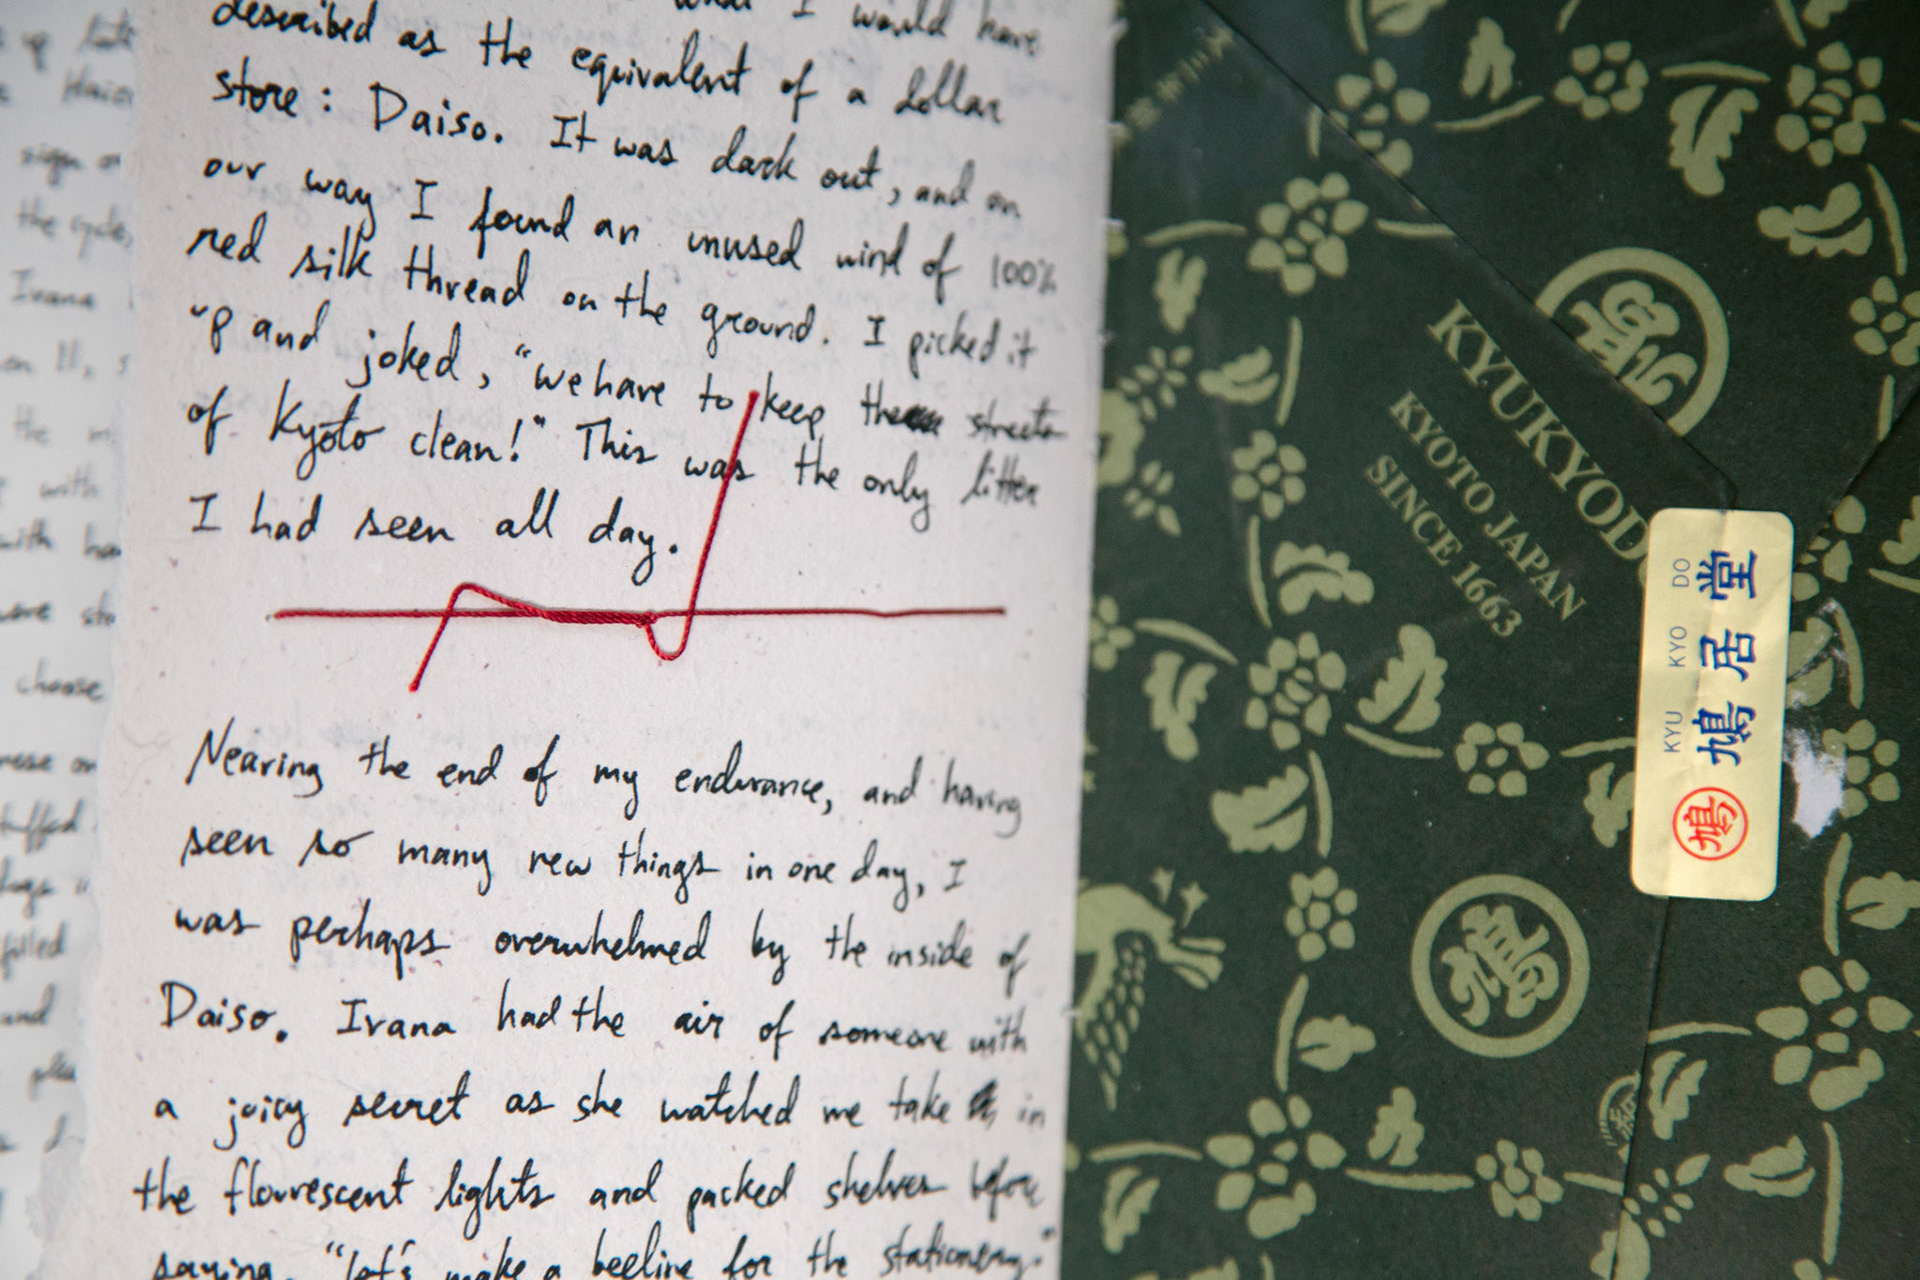 what I would have
described as the equivalent of a dollar
store: Daiso. It was dark out, and on
our way I found an unused wind of 100%
red silk thread on the ground. I picked it
up and joked, "we have to keep the streets
of Kyōto clean!" This was the only litter
I had seen all day.
Nearing the end of my endurance, and having
seen so many new things in one day, I
was perhaps overwhelmed by the inside of
Daiso. Ivana had the air of someone with
a joicy secret as she watched me take in
the flourescent lights and packed shelves before
saying, "let's make a beeline for the stationery."
sign
the cycle,
Ivana
on 11,
the
with
with
choose
filled
and
KYUKYOD
KYOTO JAPAN
SINCE 1663
KYU KYO DO
鳩居堂
鳩